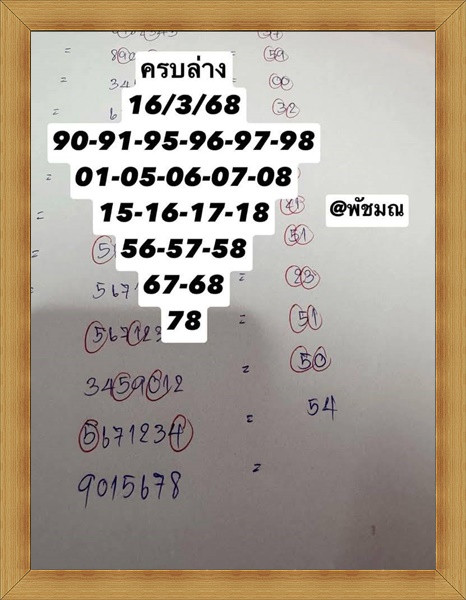 = 59
ครบล่าง
= 00
16/3/68
= 32
90-91-95-96-97-98
01-05-06-07-08
15-16-17-18
@พัชมณ
56-57-58
51
67-68
= 23
78
= 51
3459012 = 50
5671234 = 54
9015678 =